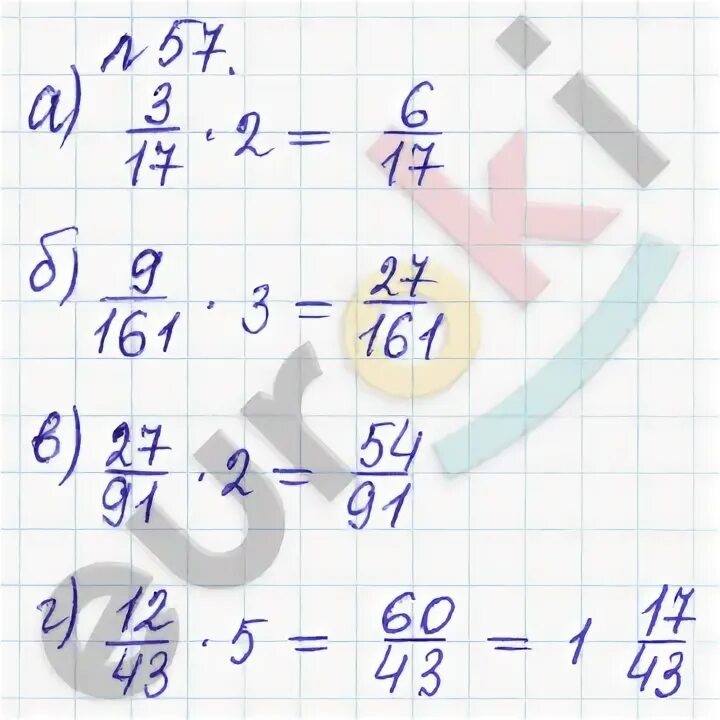 №57.
а) 3/17 · 2 = 6/17
б) 9/161 · 3 = 27/161
в) 27/91 · 2 = 54/91
г) 12/43 · 5 = 60/43 = 1 17/43
euroki